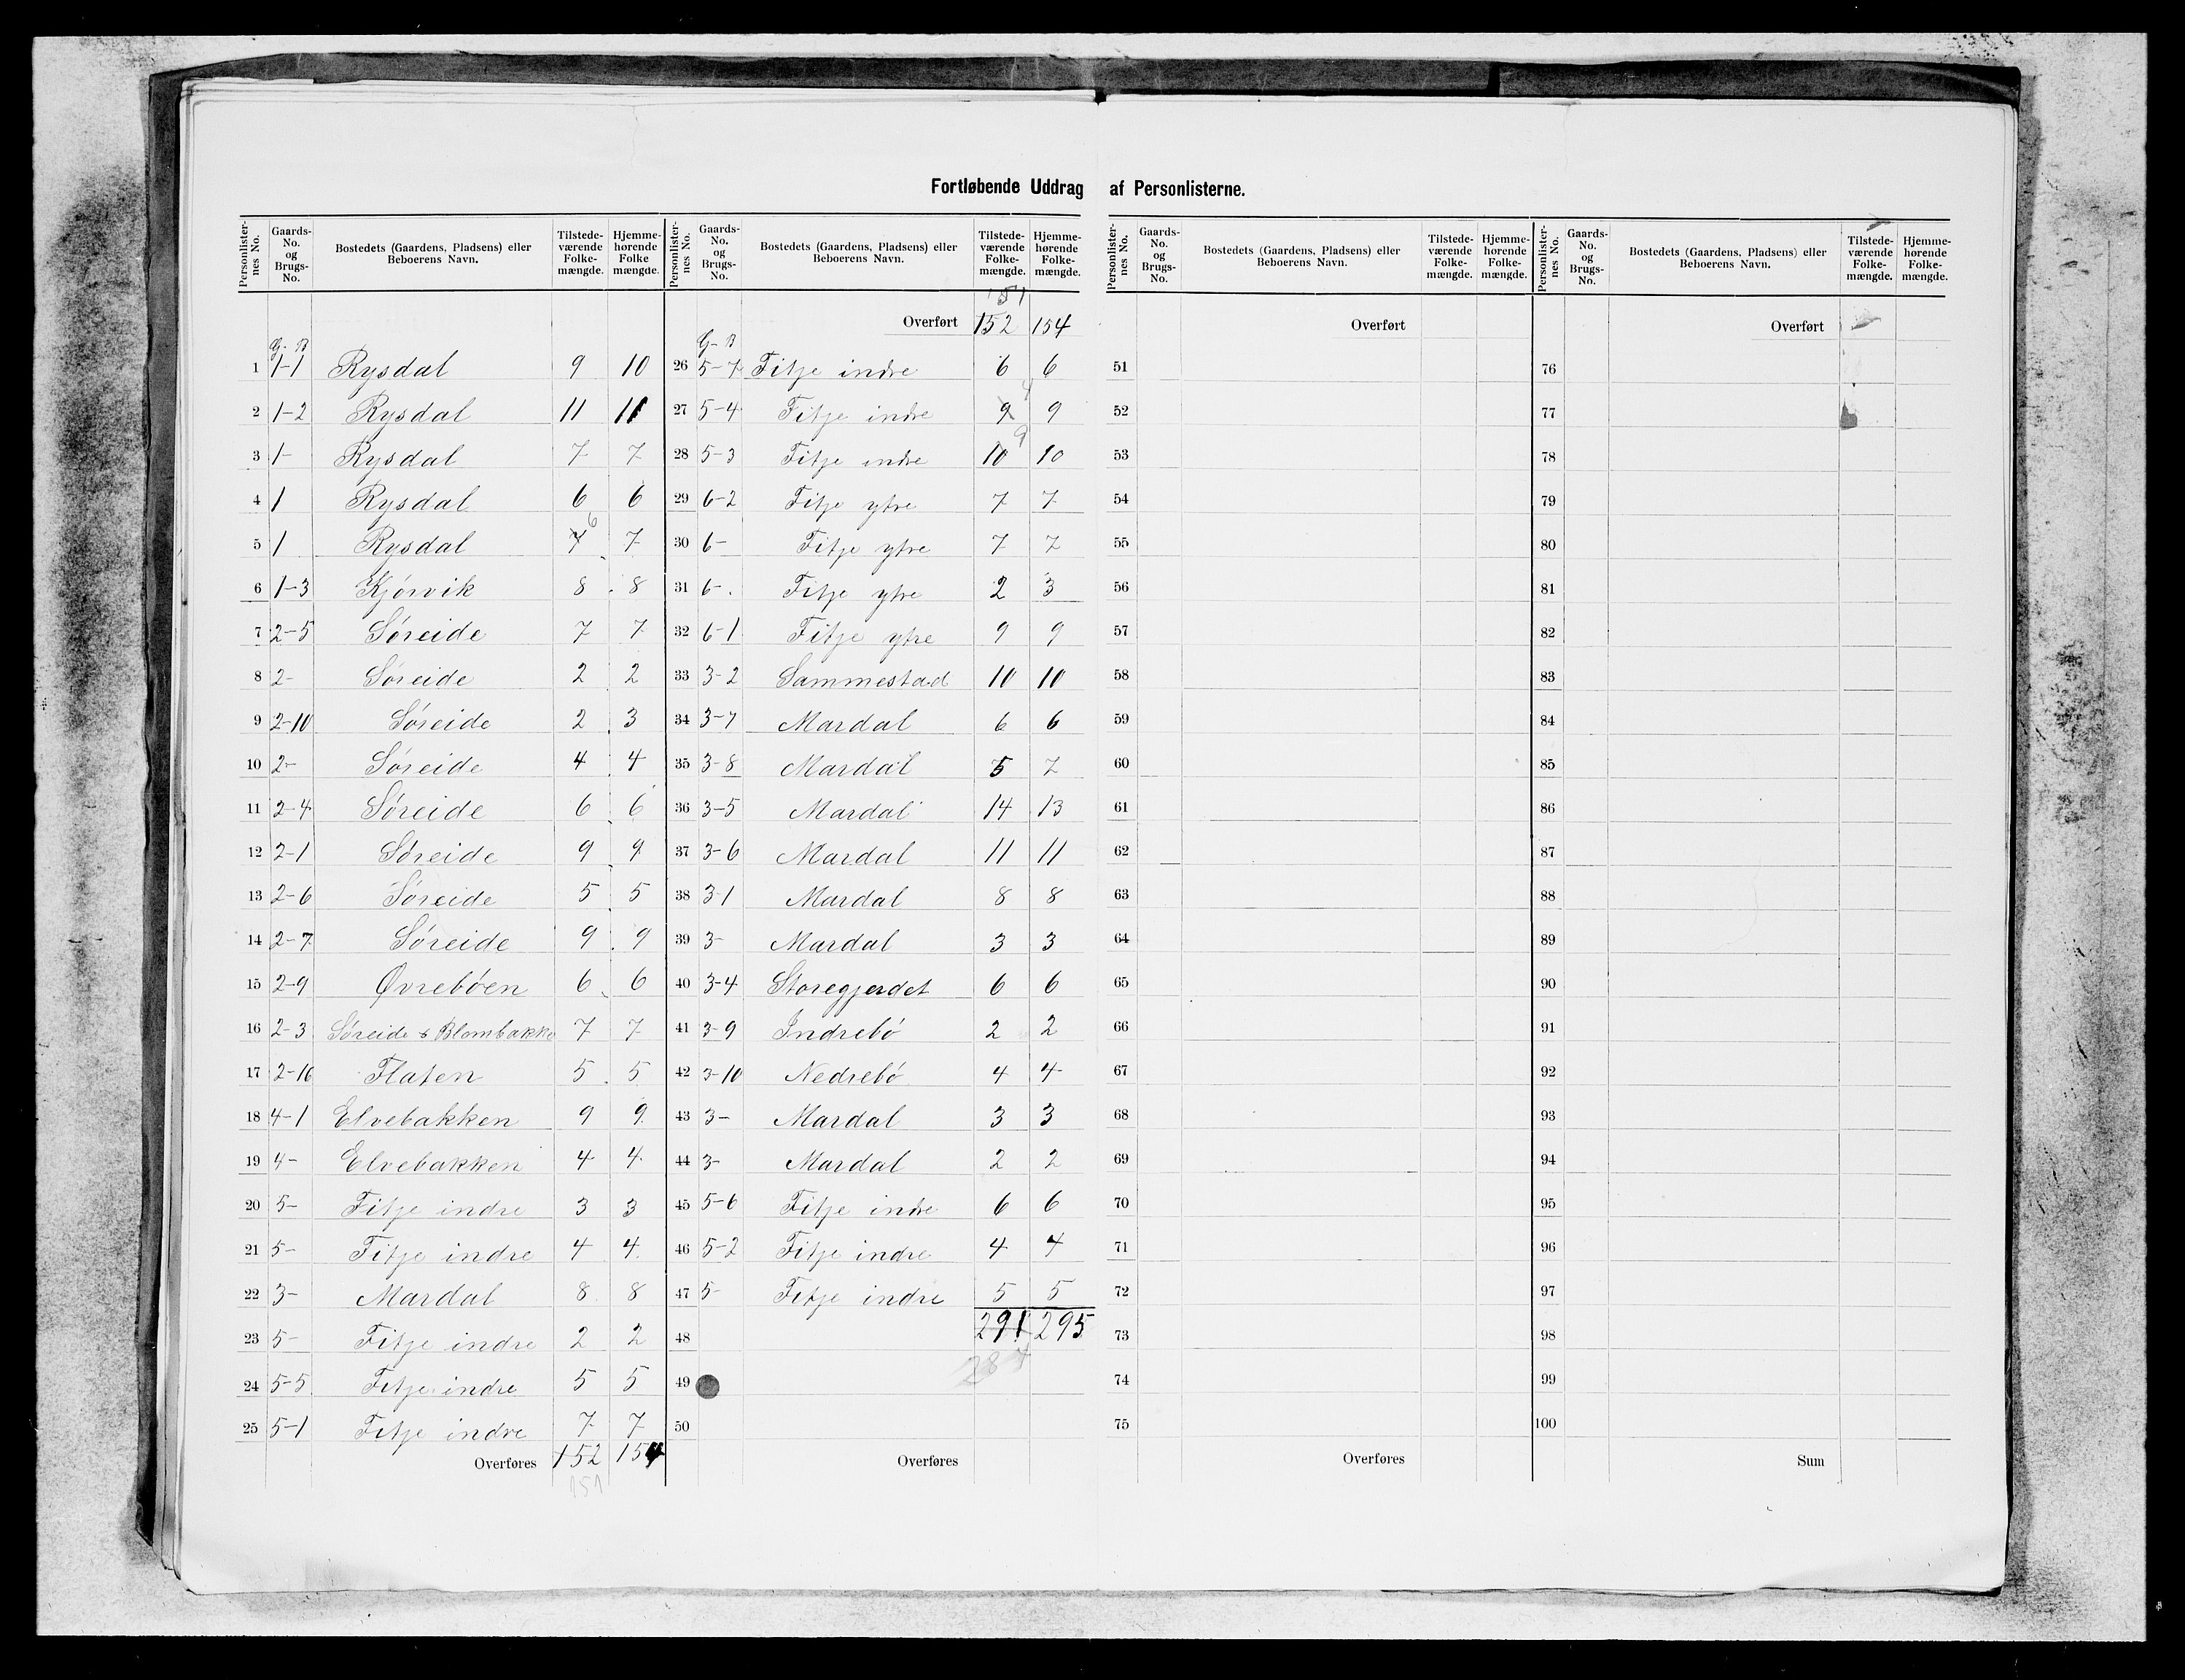 Fortløbende Uddrag af Personlisterne.
Personlister-nes No. Gaards-No. og Brugs-No. Bostedets (Gaardens, Pladsens) eller Beboerens Navn. Tilstede-værende Folke-mængde. Hjemme-hørende Folke mængde.
G. B
1 1-1 Rysdal 9 10
2 1-2 Rysdal 11 11
3 1- Rysdal 7 7
4 1 Rysdal 6 6
5 1 Rysdal 7 6 7
6 1-3 Kjørvik 8 8
7 2-5 Søreide 7 7
8 2- Søreide 2 2
9 2-10 Søreide 2 3
10 2- Søreide 4 4
11 2-4 Søreide 6 6
12 2-1 Søreide 9 9
13 2-6 Søreide 5 5
14 2-7 Søreide 9 9
15 2-9 Øvrebøen 6 6
16 2-3 Søreide & Blombakke 7 7
17 2-16 Flaten 5 5
18 4-1 Elvebakken 9 9
19 4- Elvebakken 4 4
20 5- Fitje indre 3 3
21 5- Fitje indre 4 4
22 3- Mardal 8 8
23 5- Fitje indre 2 2
24 5-5 Fitje indre 5 5
25 5-1 Fitje indre 7 7
Overføres 152 154
151
Personlister-nes No. Gaards-No. og Brugs-No. Bostedets (Gaardens, Pladsens) eller Beboerens Navn. Tilstede-værende Folke-mængde. Hjemme-hørende Folke-mængde.
151
Overført 152 154
G. B
26 5-7 Fitje indre 6 6
27 5-4 Fitje indre 9 4 9
28 5-3 Fitje indre 10 9 10
29 6-2 Fitje ytre 7 7
30 6- Fitje ytre 7 7
31 6- Fitje ytre 2 3
32 6-1 Fitje ytre 9 9
33 3-2 Sammestad 10 10
34 3-7 Mardal 6 6
35 3-8 Mardal 5 7
36 3-5 Mardal 14 13
37 3-6 Mardal 11 11
38 3-1 Mardal 8 8
39 3- Mardal 3 3
40 3-4 Storegjerdet 6 6
41 3-9 Indrebø 2 2
42 3-10 Nedrebø 4 4
43 3- Mardal 3 3
44 3- Mardal 2 2
45 5-6 Fitje indre 6 6
46 5-2 Fitje indre 4 4
47 5- Fitje indre 5 5
48 291 295
284
49
50
Overføres
Personlister-nes No. Gaards-No. og Brugs-No. Bostedets (Gaardens, Pladsens) eller Beboerens Navn. Tilstede-værende Folke-mængde. Hjemme-hørende Folke-mængde.
Overført
51
52
53
54
55
56
57
58
59
60
61
62
63
64
65
66
67
68
69
70
71
72
73
74
75
Overføres
Personlister-nes No. Gaards-No. og Brugs-No. Bostedets (Gaardens, Pladsens) eller Beboerens Navn. Tilstede-værende Folke-mængde. Hjemme-hørende Folke-mængde.
Overført
76
77
78
79
80
81
82
83
84
85
86
87
88
89
90
91
92
93
94
95
96
97
98
99
100
Sum